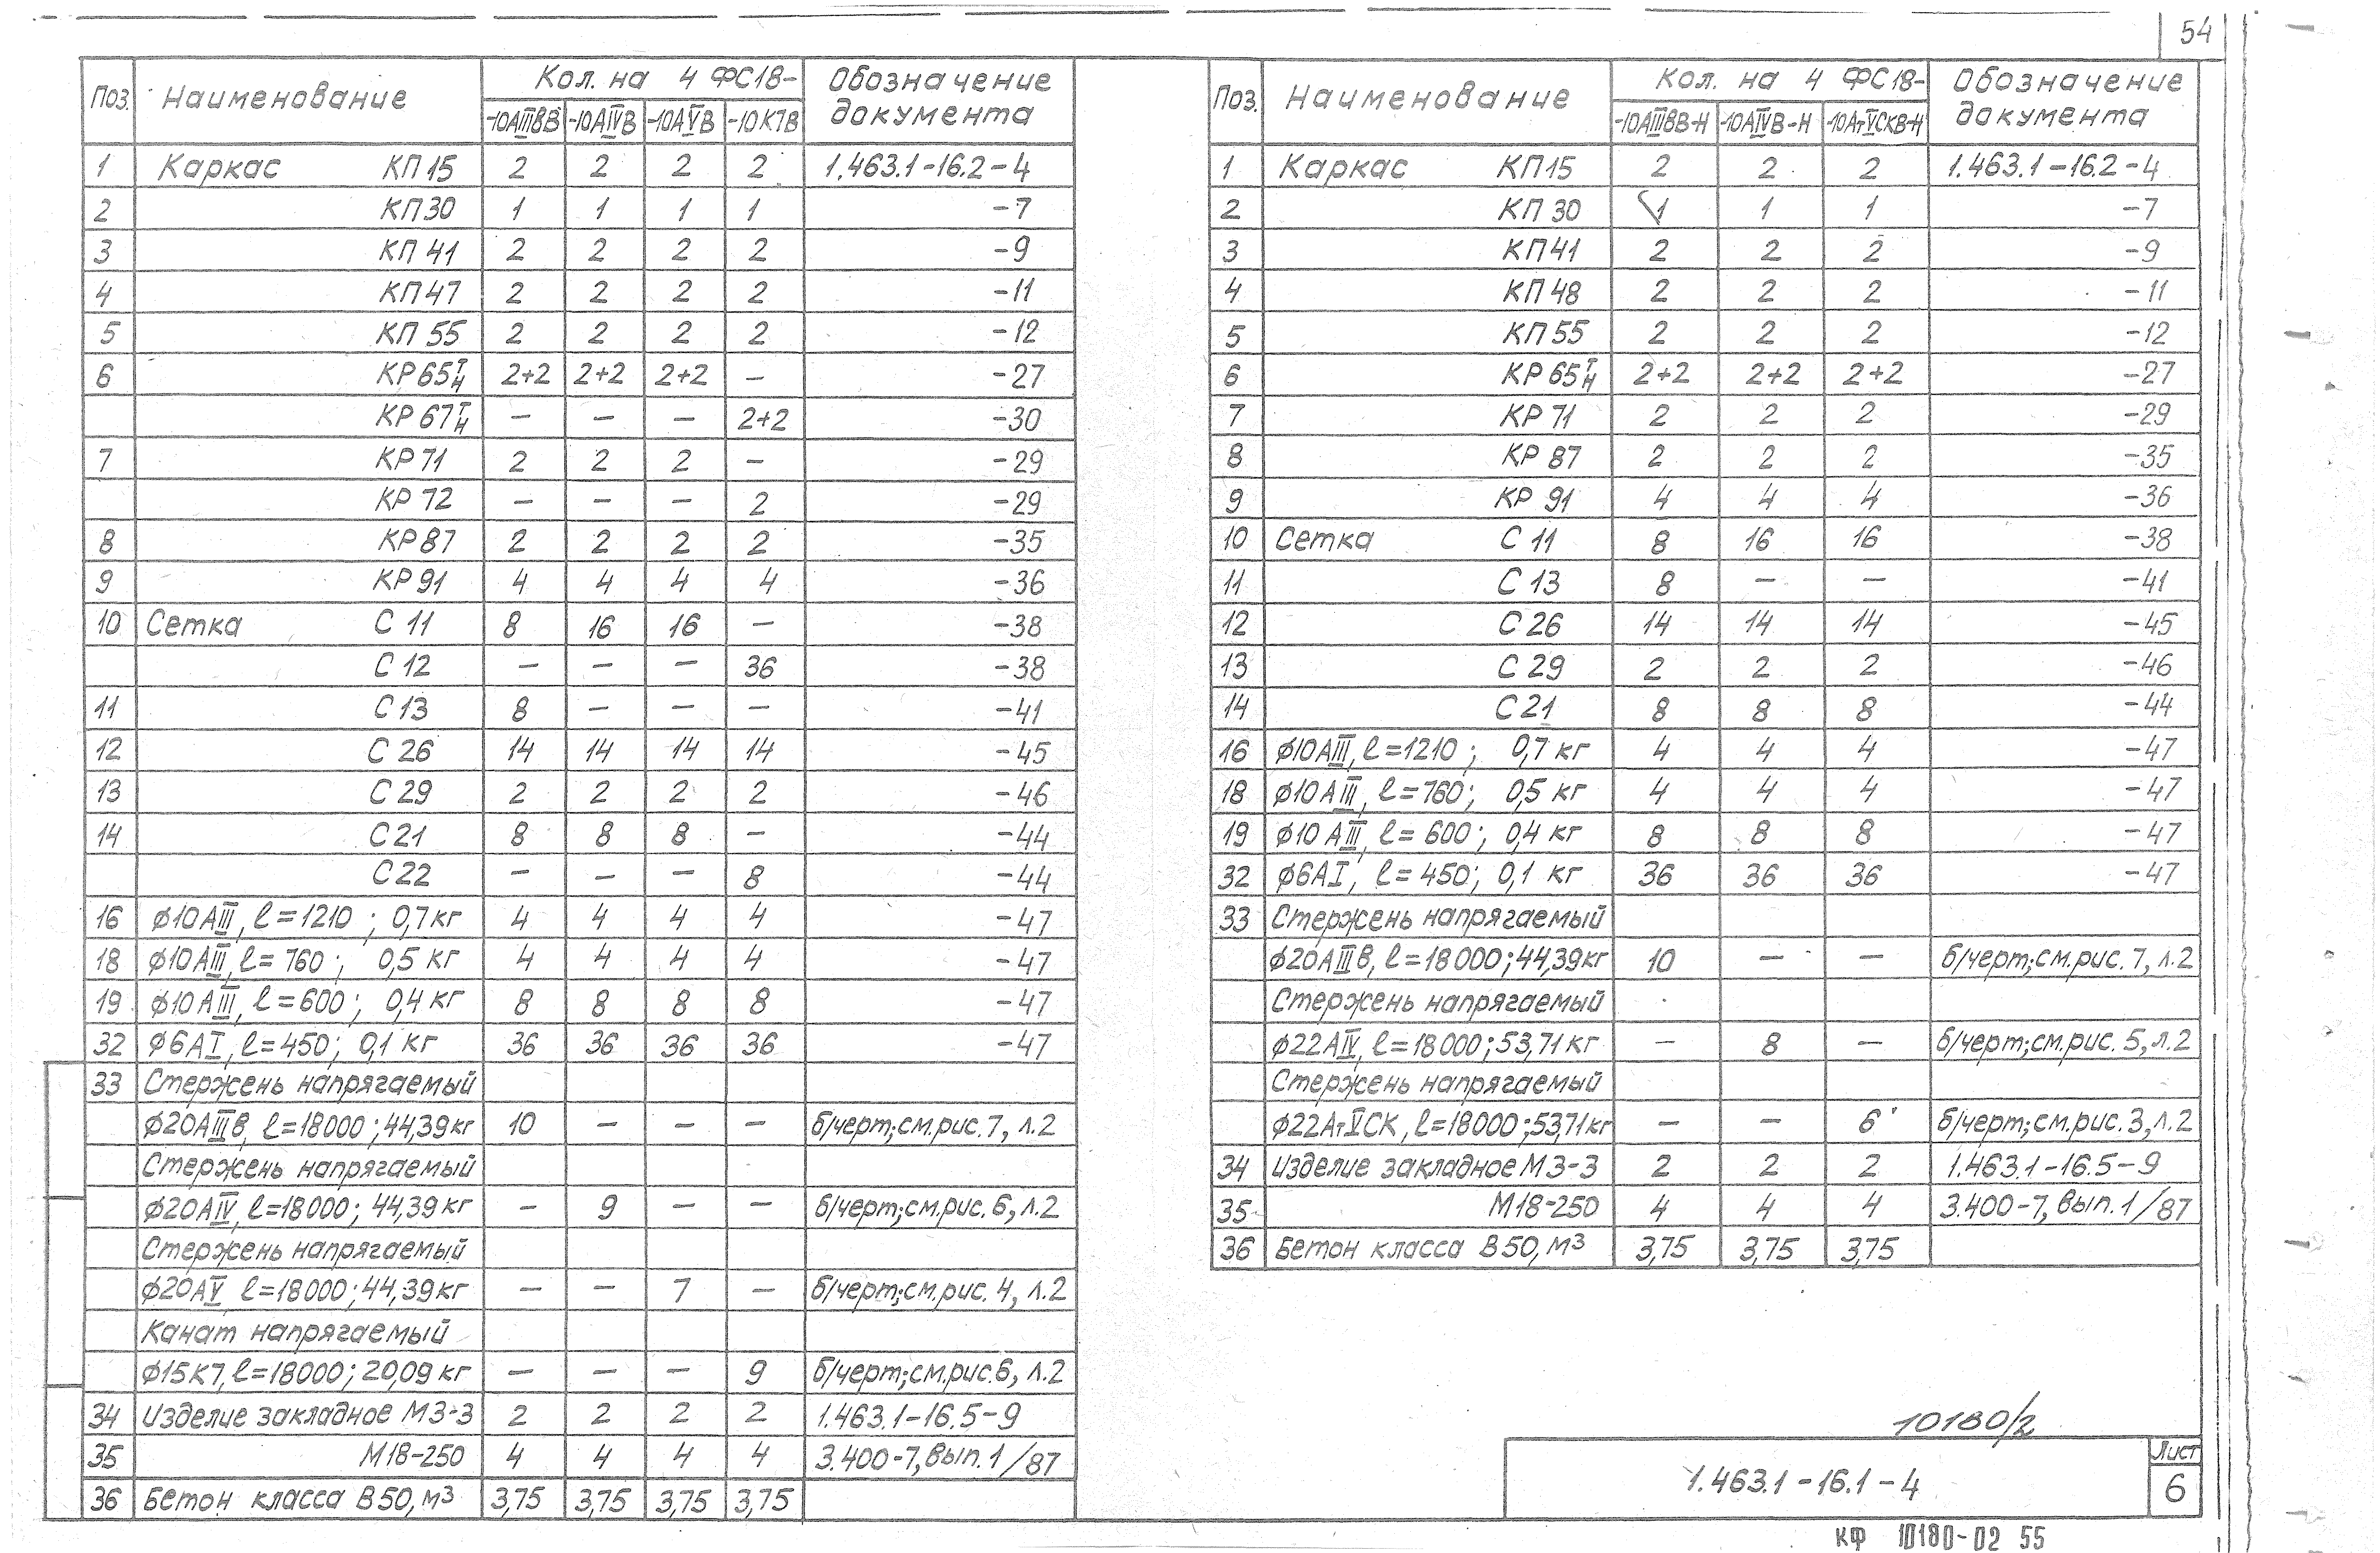 54
Поз. Наименование Кол. на 4 ФС18- Обозначение документа
-10АIIIвВ -10АIVВ -10АVВ -10К7В
1 Каркас КП15 2 2 2 2 1.463.1-16.2-4
2 КП30 1 1 1 1 -7
3 КП41 2 2 2 2 -9
4 КП47 2 2 2 2 -11
5 КП55 2 2 2 2 -12
6 КР65Т/Н 2+2 2+2 2+2 — -27
КР67Т/Н — — — 2+2 -30
7 КР71 2 2 2 — -29
КР72 — — — 2 -29
8 КР87 2 2 2 2 -35
9 КР91 4 4 4 4 -36
10 Сетка С11 8 16 16 — -38
С12 — — — 36 -38
11 С13 8 — — — -41
12 С26 14 14 14 14 -45
13 С29 2 2 2 2 -46
14 С21 8 8 8 — -44
С22 — — — 8 -44
16 ⌀10АIII, ℓ=1210; 0,7кг 4 4 4 4 -47
18 ⌀10АIII, ℓ=760; 0,5 кг 4 4 4 4 -47
19 ⌀10АIII, ℓ=600; 0,4 кг 8 8 8 8 -47
32 ⌀6АI, ℓ=450; 0,1 кг 36 36 36 36 -47
33 Стержень напрягаемый
⌀20АIIIв, ℓ=18000; 44,39кг 10 — — — б/черт; см.рис.7, л.2
Стержень напрягаемый
⌀20АIV, ℓ=18000; 44,39кг — 9 — — б/черт; см.рис.6, л.2
Стержень напрягаемый
⌀20АV ℓ=18000; 44,39кг — — 7 — б/черт; см.рис. 4, л.2
Канат напрягаемый
⌀15К7, ℓ=18000; 20,09кг — — — 9 б/черт; см.рис.6, л.2
34 Изделие закладное МЗ-3 2 2 2 2 1.463.1-16.5-9
35 М18-250 4 4 4 4 3.400-7, вып.1/87
36 Бетон класса В50, м³ 3,75 3,75 3,75 3,75
Поз. Наименование Кол. на 4 ФС18- Обозначение документа
-10АIIIвВ-Н -10АIVВ-Н -10АтVСКВ-Н
1 Каркас КП15 2 2 2 1.463.1-16.2-4
2 КП30 1 1 1 -7
3 КП41 2 2 2 -9
4 КП48 2 2 2 -11
5 КП55 2 2 2 -12
6 КР65Т/Н 2+2 2+2 2+2 -27
7 КР71 2 2 2 -29
8 КР87 2 2 2 -35
9 КР91 4 4 4 -36
10 Сетка С11 8 16 16 -38
11 С13 8 — — -41
12 С26 14 14 14 -45
13 С29 2 2 2 -46
14 С21 8 8 8 -44
16 ⌀10АIII, ℓ=1210; 0,7 кг 4 4 4 -47
18 ⌀10АIII, ℓ=760; 0,5 кг 4 4 4 -47
19 ⌀10АIII, ℓ=600; 0,4 кг 8 8 8 -47
32 ⌀6АI, ℓ=450; 0,1 кг 36 36 36 -47
33 Стержень напрягаемый
⌀20АIIIв, ℓ=18000; 44,39кг 10 — — б/черт; см.рис.7, л.2
Стержень напрягаемый
⌀22АIV, ℓ=18000; 53,71кг — 8 — б/черт; см.рис. 5, л.2
Стержень напрягаемый
⌀22АтVСК, ℓ=18000; 53,71кг — — 6 б/черт; см.рис.3, л.2
34 Изделие закладное МЗ-3 2 2 2 1.463.1-16.5-9
35 М18-250 4 4 4 3.400-7, вып.1/87
36 Бетон класса В50, м³ 3,75 3,75 3,75
10180/2
1.463.1-16.1-4
Лист
6
КФ 10180-02 55